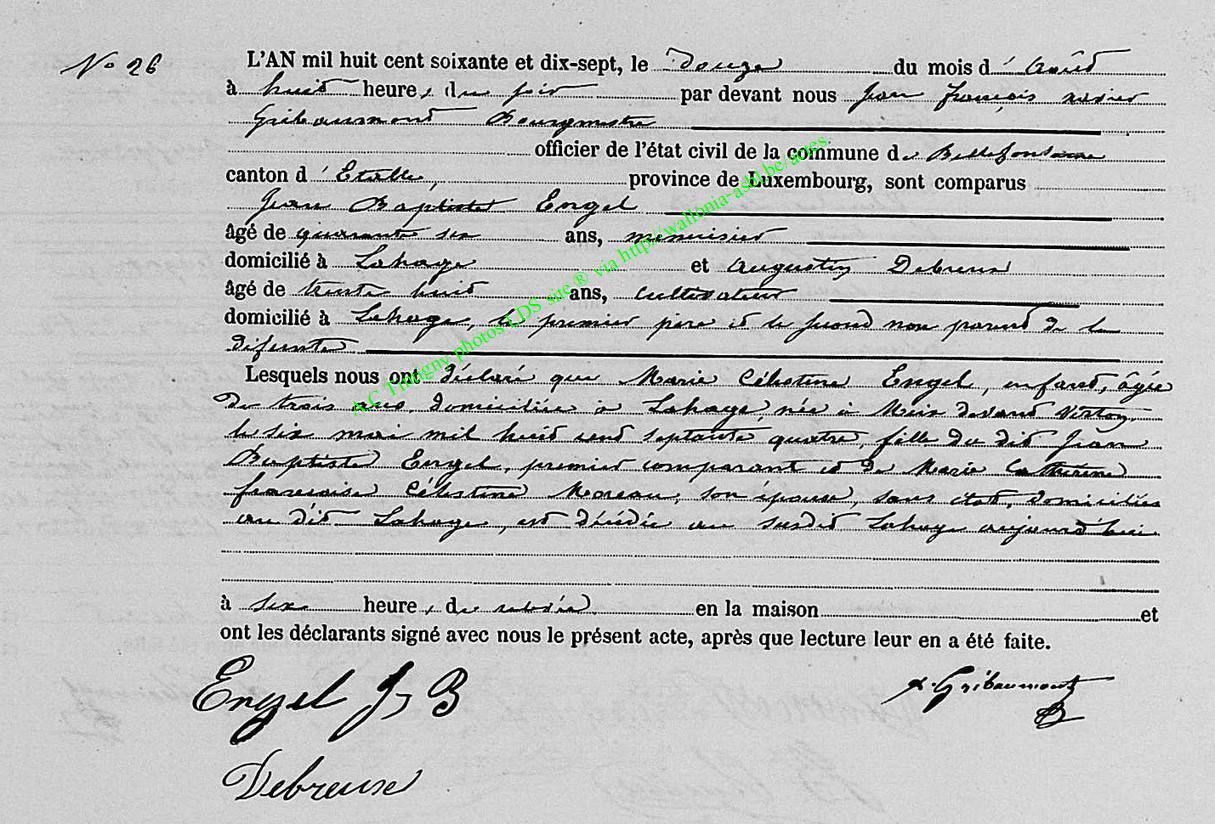 N° 26
L'AN mil huit cent soixante et dix-sept, le Douze du mois d'Août
à huit heures du soir par devant nous Jean françois xavier
Gribaumont Bourgmestre
officier de l'état civil de la commune de Bellefontaine
canton d'Etalle, province de Luxembourg, sont comparus
Jean Baptiste Engel
âgé de quarante six ans, menuisier
domicilié à Lahage et Augustin Debreux
âgé de trente huit ans, cultivateur
domicilié à Lahage, le premier père et le second non parent de la
défunte
Lesquels nous ont déclaré que Marie Célestine Engel, enfant, âgée
de trois ans, domiciliée à Lahage, née à Meix devant Virton,
le six mai mil huit cent septante quatre, fille du dit Jean
Baptiste Engel, premier comparant et de Marie Catherine
françoise Célestine Moreau, son épouse, sans état, domiciliés
au dit Lahage, est décédée au susdit Lahage aujourd'hui
à six heures de relevée en la maison et
ont les déclarants signé avec nous le présent acte, après que lecture leur en a été faite.
Engel J B
x. Gribaumont
Debreuse
A.C Tintigny photos LDS site ® via http://wallonia-asbl.be/actes